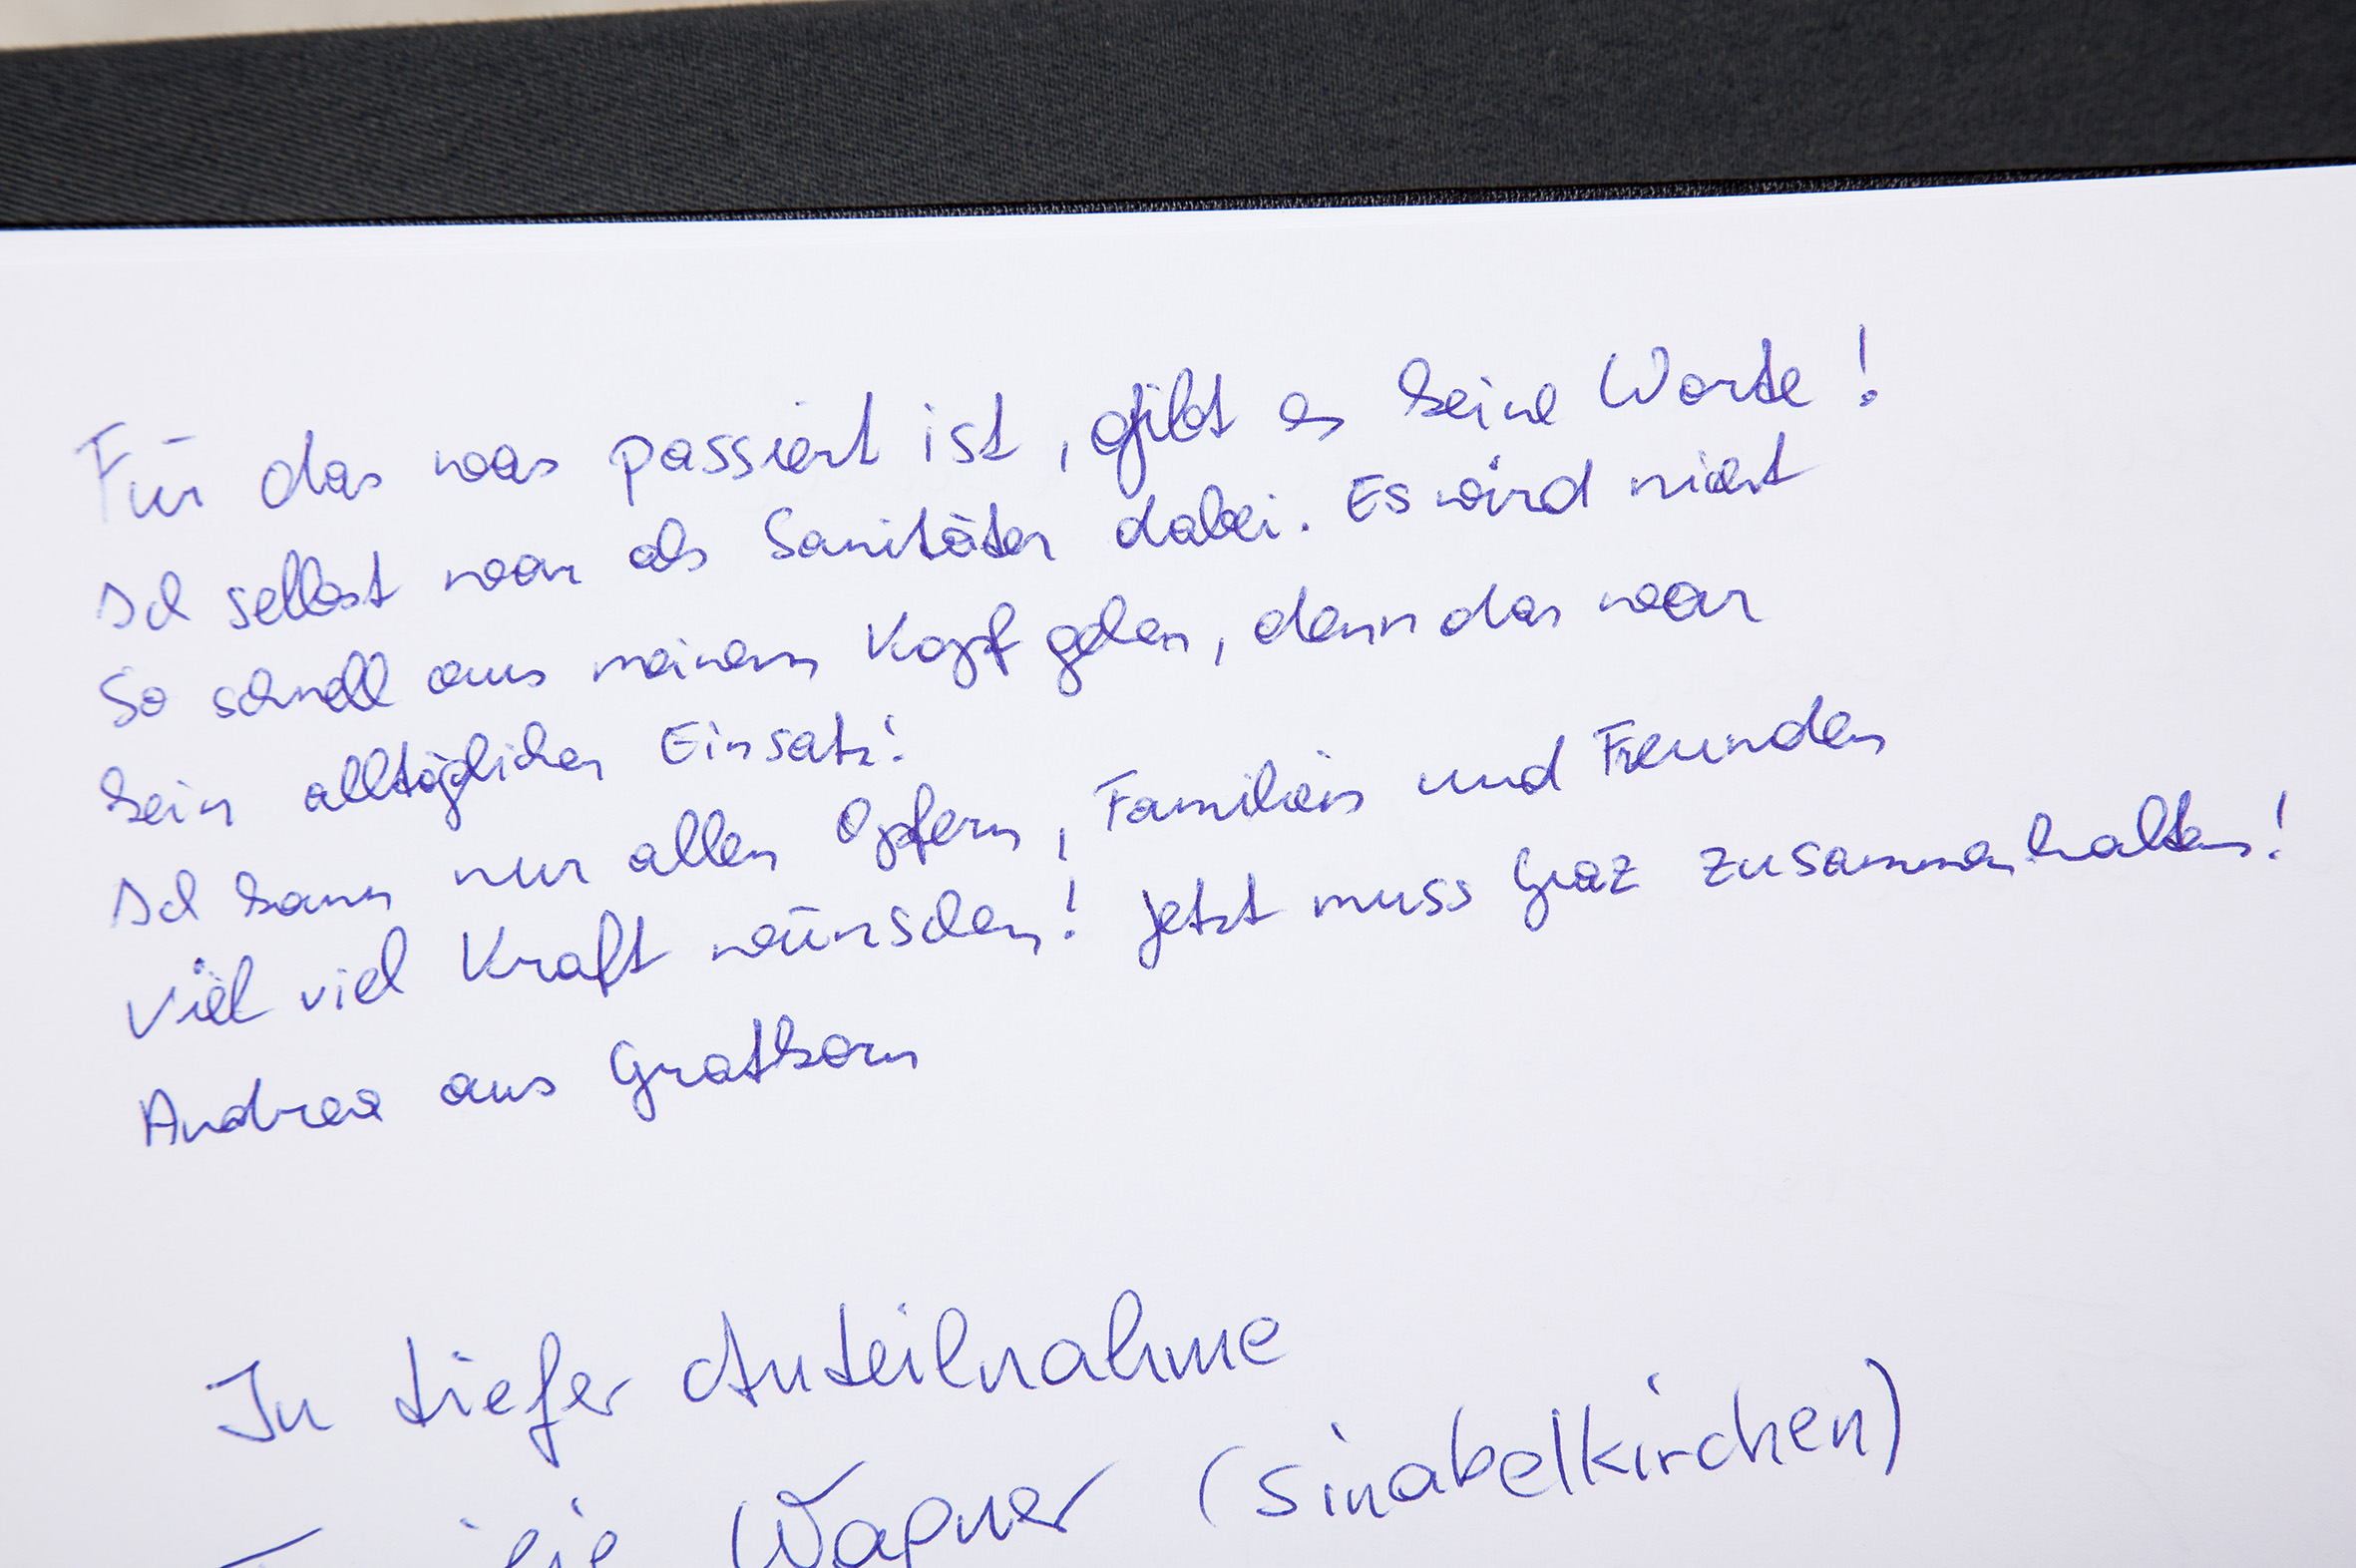 Für das was passiert ist, gibt es keine Worte!
Ich selbst war als Sanitäter dabei. Es wird nicht
So schnell aus meinem Kopf gehen, denn das war
kein alltäglicher Einsatz!
Ich kann nur allen Opfern, Familien und Freunden
Viel viel Kraft wünschen! Jetzt muss Graz zusammenhalten!
Andrea aus Gratkorn
In tiefer Anteilnahme
Familie Wagner (Sinabelkirchen)